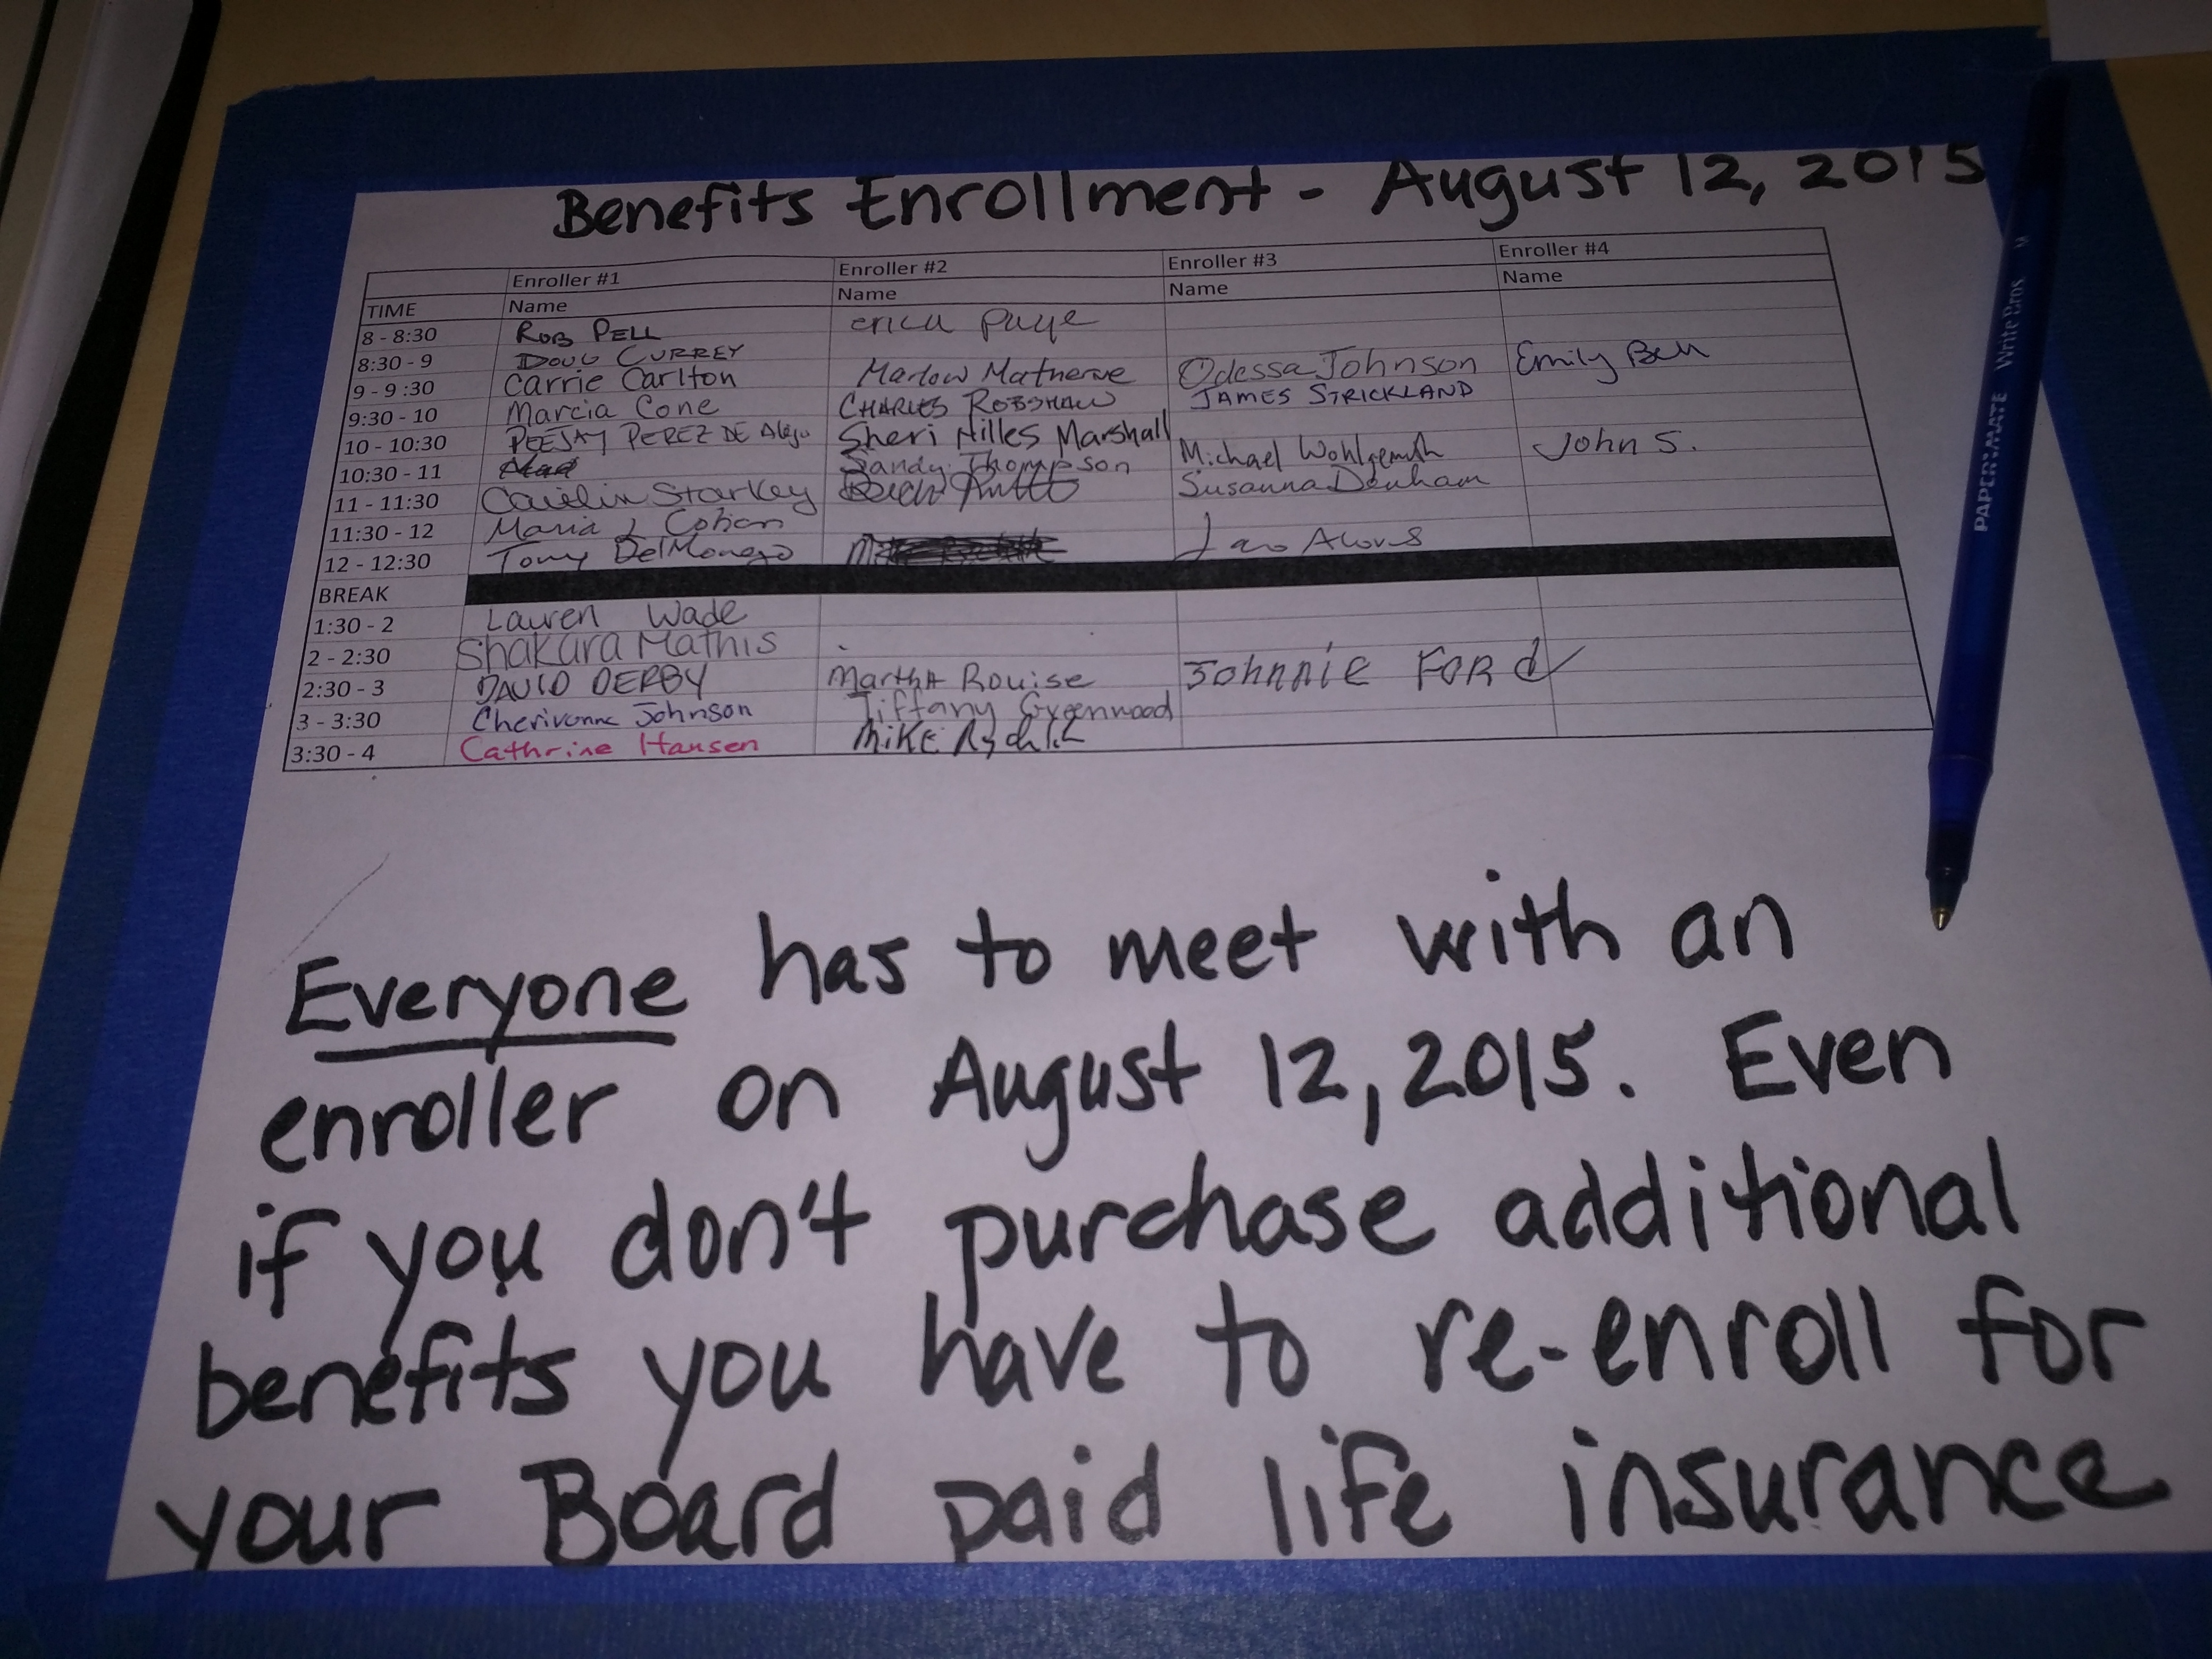 Benefits Enrollment - August 12, 2015
Enroller #1 Enroller #2 Enroller #3 Enroller #4
TIME Name Name Name Name
8 - 8:30 ROB PELL erica page
8:30 - 9 DOUG CURREY
9 - 9:30 Carrie Carlton Marlow Matherne Odessa Johnson Emily Bell
9:30 - 10 Marcia Cone CHARLES ROBSHAW JAMES STRICKLAND
10 - 10:30 PEEJAY PEREZ DE Alejo Sheri Hilles Marshall
10:30 - 11 Sandy Thompson Michael Wohlgemuth John S.
11 - 11:30 Caitlin Starkey Susanna Denham
11:30 - 12 Maria J Cohen
12 - 12:30 Tony DelMonego
BREAK
1:30 - 2 Lauren Wade
2 - 2:30 Shakara Mathis
2:30 - 3 DAVID DERBY Martha Rouise Johnnie Ford
3 - 3:30 Cherivonne Johnson Tiffany Greenwood
3:30 - 4 Cathrine Hansen Mike
Everyone has to meet with an
enroller on August 12, 2015. Even
if you don't purchase additional
benefits you have to re-enroll for
your Board paid life insurance
PAPERMATE Write Bros M